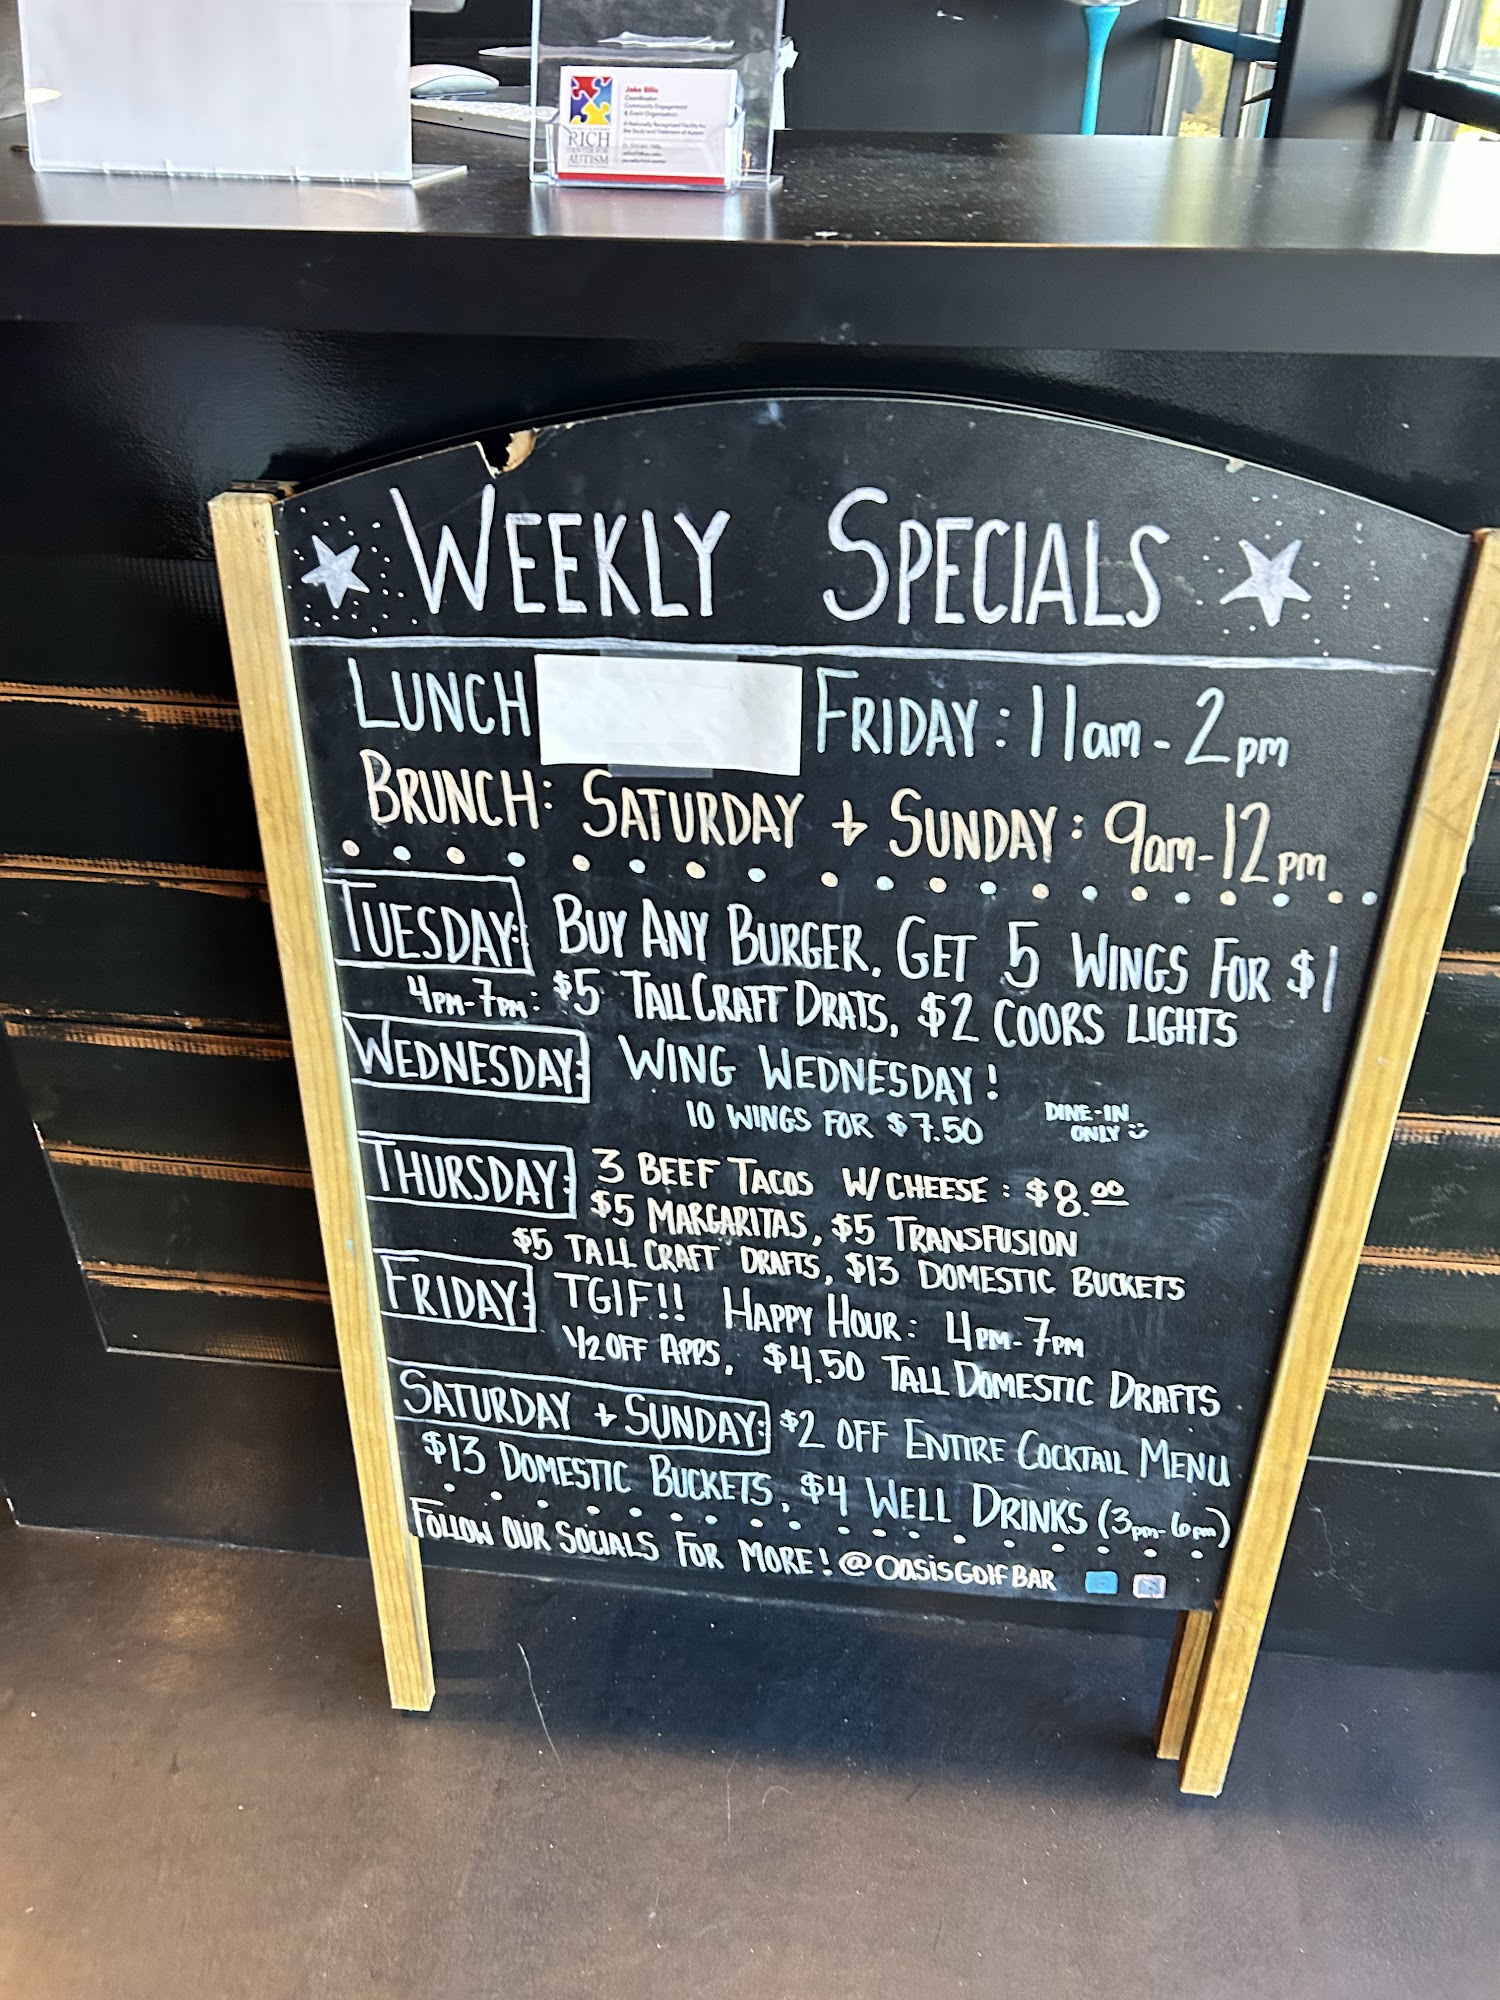 Jake Ellis
Coordinator
Community Engagement
& Event Organization
A Nationally Recognized Facility for
the Study and Treatment of Autism
RICH
CENTER FOR
AUTISM
WEEKLY SPECIALS
LUNCH FRIDAY: 11am-2pm
BRUNCH: SATURDAY + SUNDAY: 9am-12pm
TUESDAY: BUY ANY BURGER, GET 5 WINGS FOR $1
4PM-7PM: $5 TALL CRAFT DRATS, $2 COORS LIGHTS
WEDNESDAY: WING WEDNESDAY!
10 WINGS FOR $7.50 DINE-IN
ONLY
THURSDAY: 3 BEEF TACOS W/CHEESE: $8.00
$5 MARGARITAS, $5 TRANSFUSION
$5 TALL CRAFT DRAFTS, $13 DOMESTIC BUCKETS
FRIDAY: TGIF!! HAPPY HOUR: 4PM-7PM
1/2 OFF APPS, $4.50 TALL DOMESTIC DRAFTS
SATURDAY + SUNDAY: $2 OFF ENTIRE COCKTAIL MENU
$13 DOMESTIC BUCKETS, $4 WELL DRINKS (3pm-6pm)
FOLLOW OUR SOCIALS FOR MORE! @OASISGOLFBAR